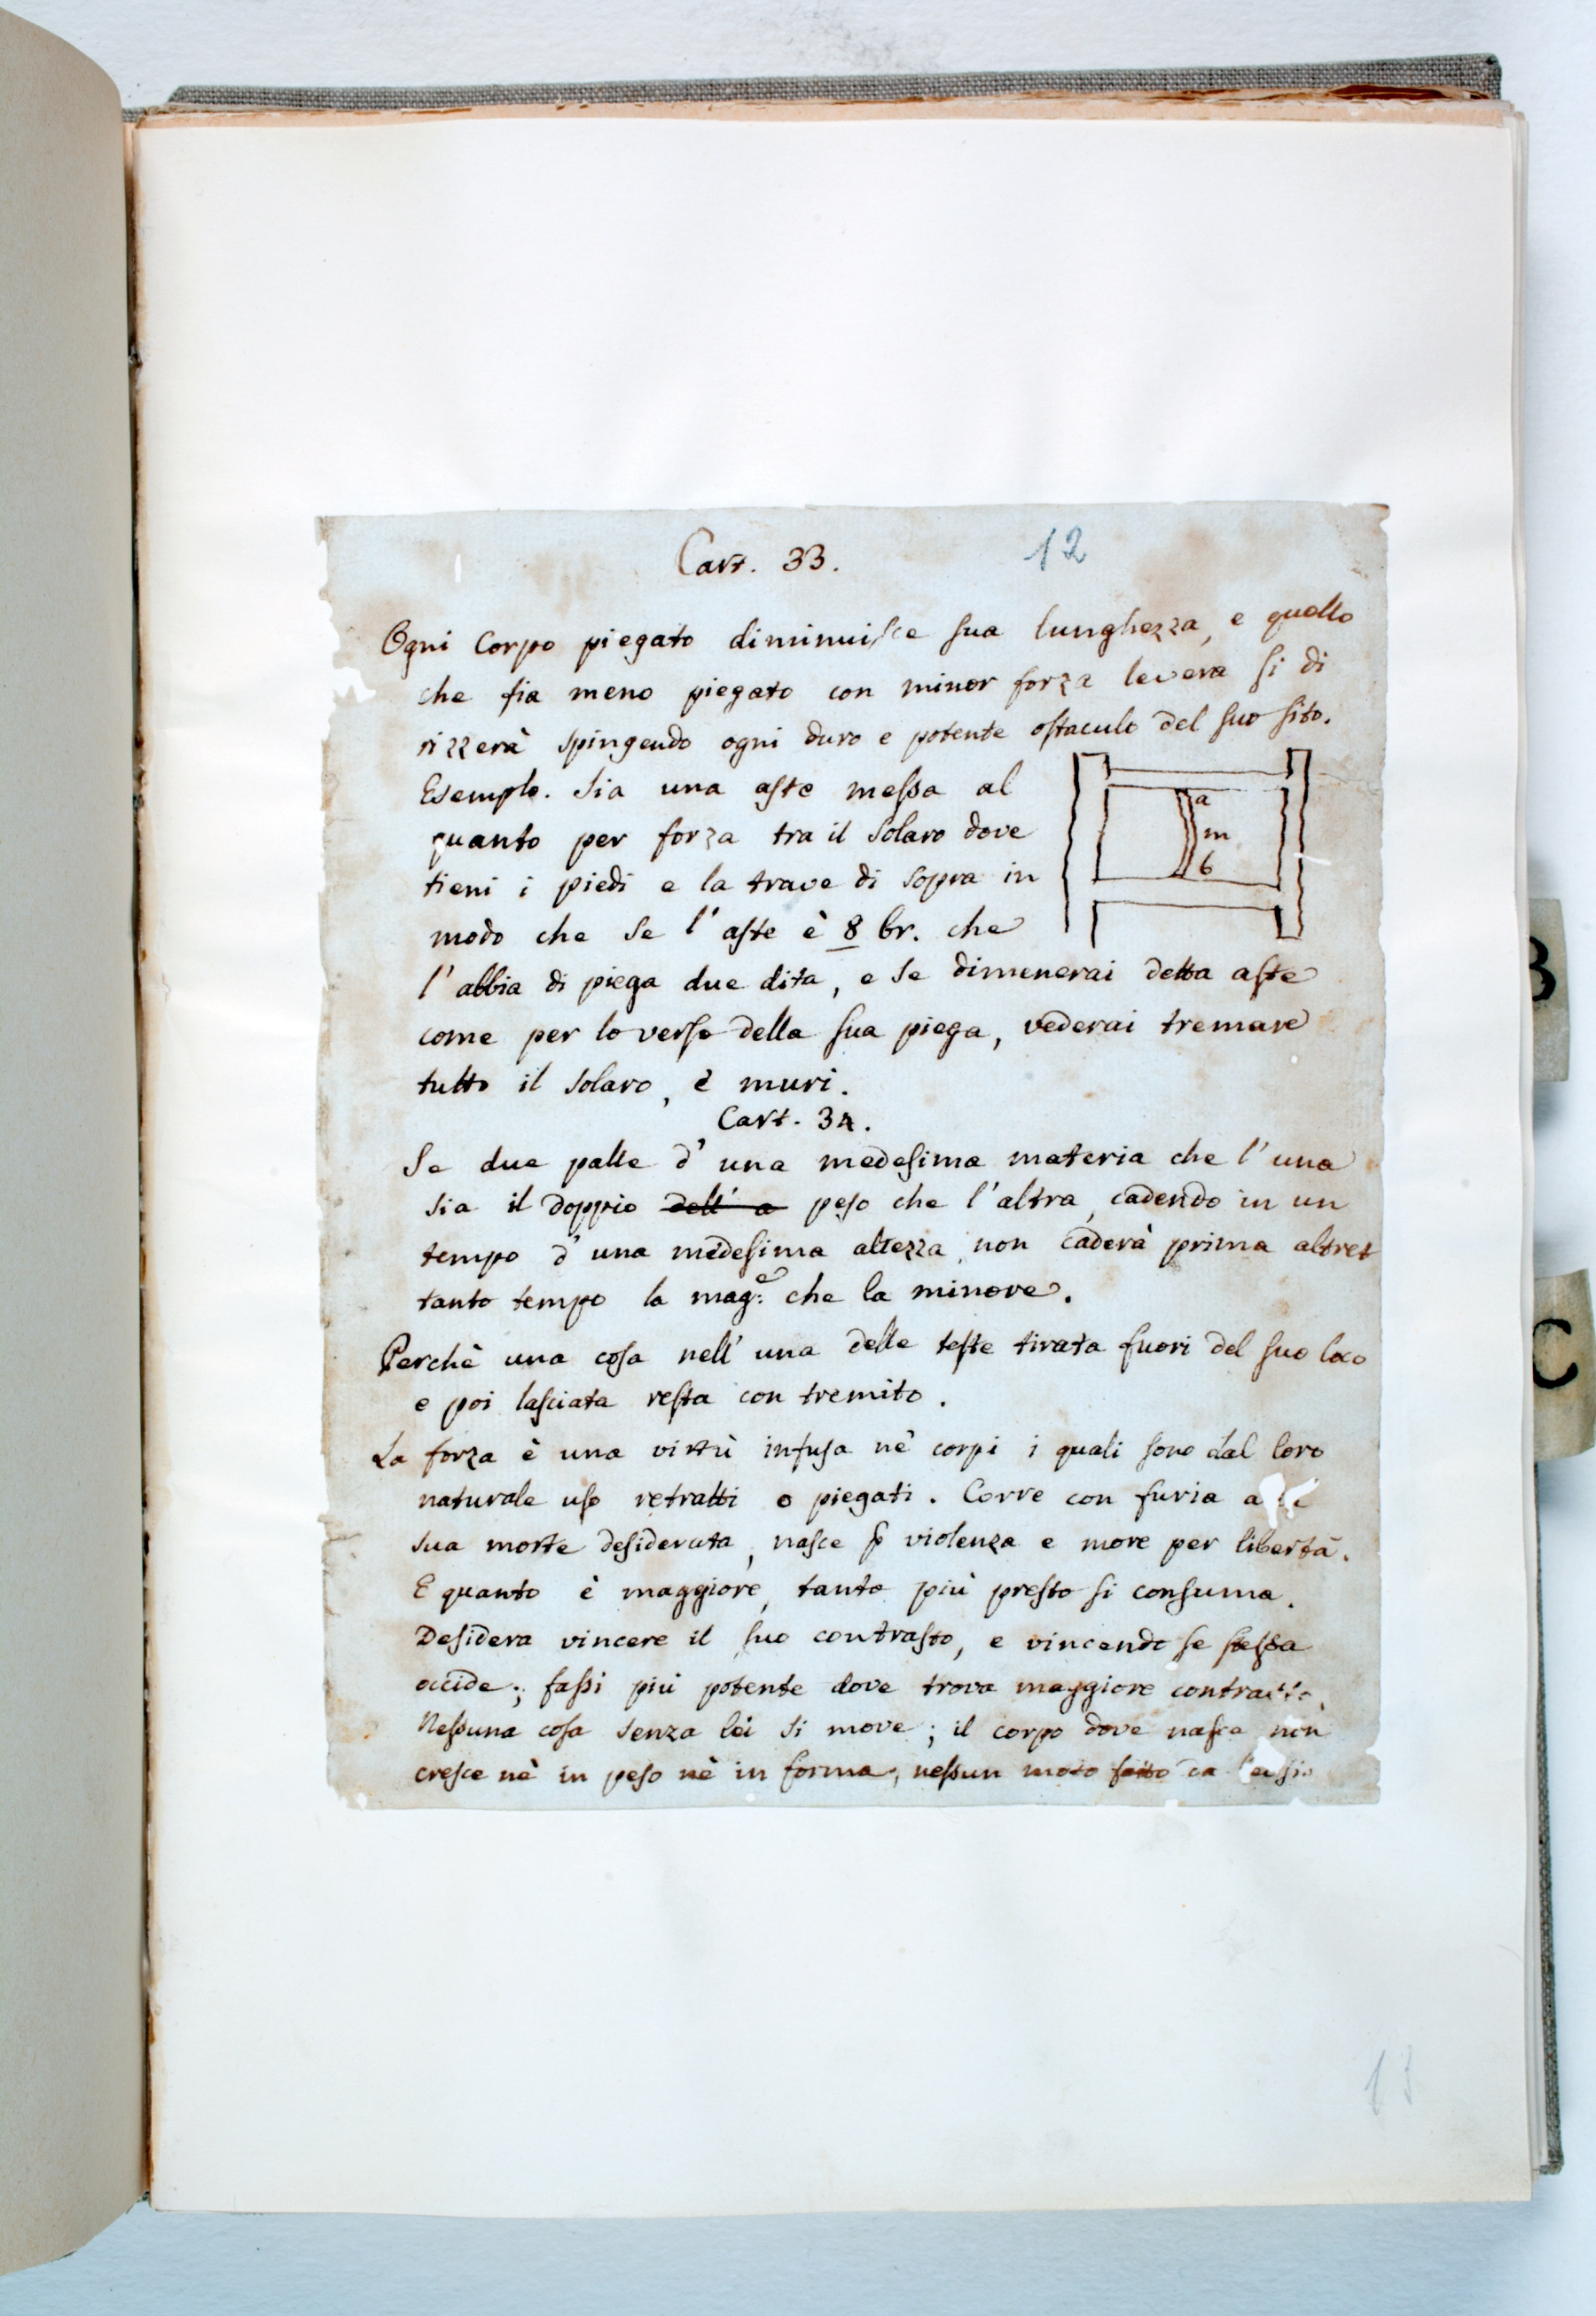 Cart. 33.
12
Ogni Corpo piegato diminuisce sua lunghezza, e quello
che fia meno piegato con minor forza levera si di
rizzerà spingendo ogni duro e potente ostaculo del suo sito.
Esemplo. Sia una aste messa al
quanto per forza tra il Solaro dove
tieni i piedi e la trave di sopra in
modo che se l'aste è 8 br. che
l'abbia di piega due dita, e se dimenerai detta aste
come per lo verso della sua piega, vederai tremare
tutto il solaro, e muri.
a
m
b
Cart. 34.
Se due palle d'una medesima materia che l'una
sia il doppio dell' a peso che l'altra, cadendo in un
tempo d'una medesima altezza, non caderà prima altret
tanto tempo la mag.e che la minore.
Perchè una cosa nell'una delle teste tirata fuori del suo loco
e poi lasciata resta con tremito.
La forza è una virtù infusa nè corpi i quali sono dal loro
naturale uso retratti o piegati. Corre con furia
sua morte desiderata, nasce p violenza e more per libertà.
E quanto è maggiore, tanto più presto si consuma.
Desidera vincere il suo contrasto, e vincendo se stessa
occide; fassi più potente dove trova maggiore contrasto.
Nessuna cosa senza lei si move; il corpo dove nasce non
cresce nè in peso nè in forma, nessun moto fatto da
13
B
C